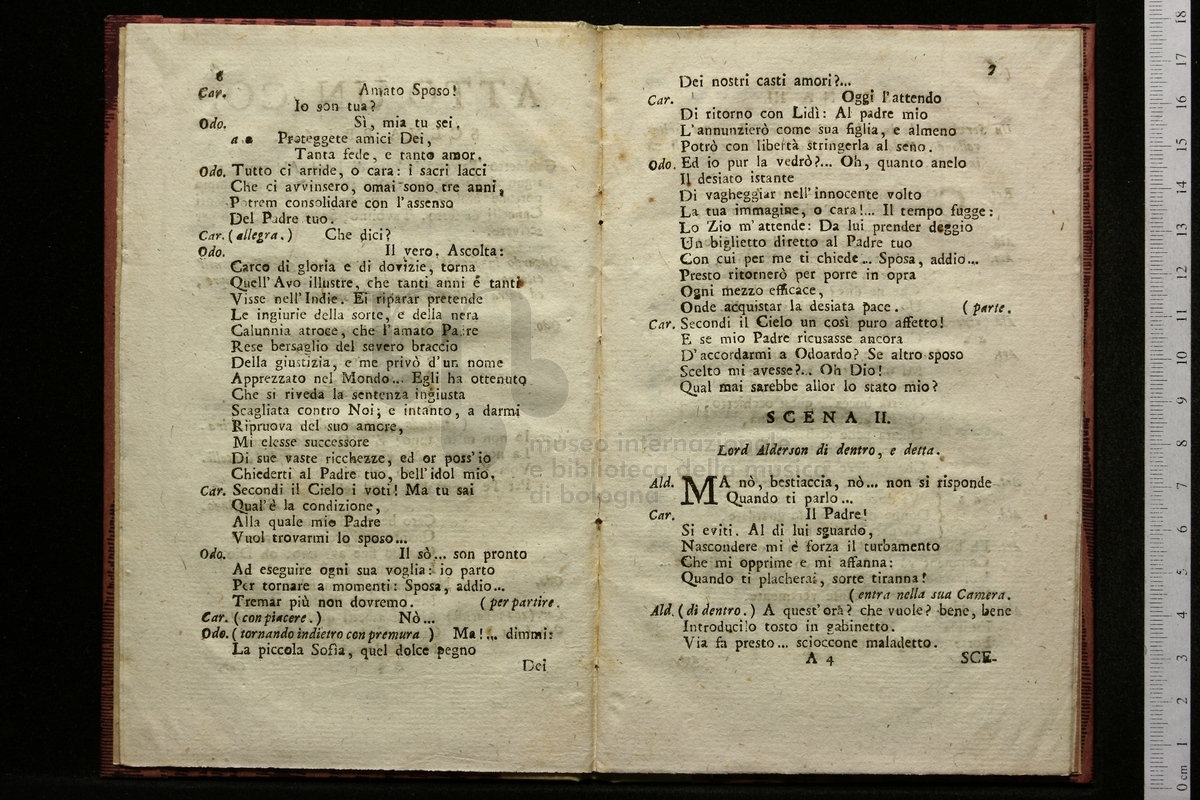 6
Car. Amato Sposo!
Io son tua?
Odo. Sì, mia tu sei.
a 2 Proteggete amici Dei,
Tanta fede, e tanto amor.
Odo. Tutto ci arride, o cara: i sacri lacci
Che ci avvinsero, omai sono tre anni,
Potrem consolidare con l'assenso
Del Padre tuo.
Car. (allegra.) Che dici?
Odo. Il vero. Ascolta:
Carco di gloria e di dovizie, torna
Quell'Avo illustre, che tanti anni è tanti
Visse nell'Indie. Ei riparar pretende
Le ingiurie della sorte, e della nera
Calunnia atroce, che l'amato Padre
Rese bersaglio del severo braccio
Della giustizia, e me privò d'un nome
Apprezzato nel Mondo... Egli ha ottenuto
Che si riveda la sentenza ingiusta
Scagliata contro Noi; e intanto, a darmi
Ripruova del suo amore,
Mi elesse successore
Di sue vaste ricchezze, ed or poss'io
Chiederti al Padre tuo, bell'idol mio.
Car. Secondi il Cielo i voti! Ma tu sai
Qual'è la condizione,
Alla quale mio Padre
Vuol trovarmi lo sposo...
Odo. Il sò... son pronto
Ad eseguire ogni sua voglia: io parto
Per tornare a momenti: Sposa, addio...
Tremar più non dovremo. (per partire.
Car. (con piacere.) Nò...
Odo. (tornando indietro con premura) Ma!... dimmi:
La piccola Sofia, quel dolce pegno
Dei
7
Dei nostri casti amori?...
Car. Oggi l'attendo
Di ritorno con Lidì: Al padre mio
L'annunzierò come sua figlia, e almeno
Potrò con libertà stringerla al seno.
Odo. Ed io pur la vedrò?... Oh, quanto anelo
Il desiato istante
Di vagheggiar nell'innocente volto
La tua immagine, o cara!... Il tempo fugge:
Lo Zio m'attende: Da lui prender deggio
Un biglietto diretto al Padre tuo
Con cui per me ti chiede... Sposa, addio...
Presto ritornerò per porre in opra
Ogni mezzo efficace,
Onde acquistar la desiata pace. (parte.
Car. Secondi il Cielo un così puro affetto!
E se mio Padre ricusasse ancora
D'accordarmi a Odoardo? Se altro sposo
Scelto mi avesse?.. Oh Dio!
Qual mai sarebbe allor lo stato mio?
SCENA II.
Lord Alderson di dentro, e detta.
Ald. MA nò, bestiaccia, nò... non si risponde
Quando ti parlo...
Car. Il Padre!
Si eviti. Al di lui sguardo,
Nascondere mi è forza il turbamento
Che mi opprime e mi affanna:
Quando ti placherai, sorte tiranna!
(entra nella sua Camera.
Ald. (di dentro.) A quest'ora? che vuole? bene, bene
Introducilo tosto in gabinetto.
Via fa presto... scioccone maladetto.
A 4 SCE-
museo internazionale
e biblioteca della musica
di bologna
0 cm 1 2 3 4 5 6 7 8 9 10 11 12 13 14 15 16 17 18